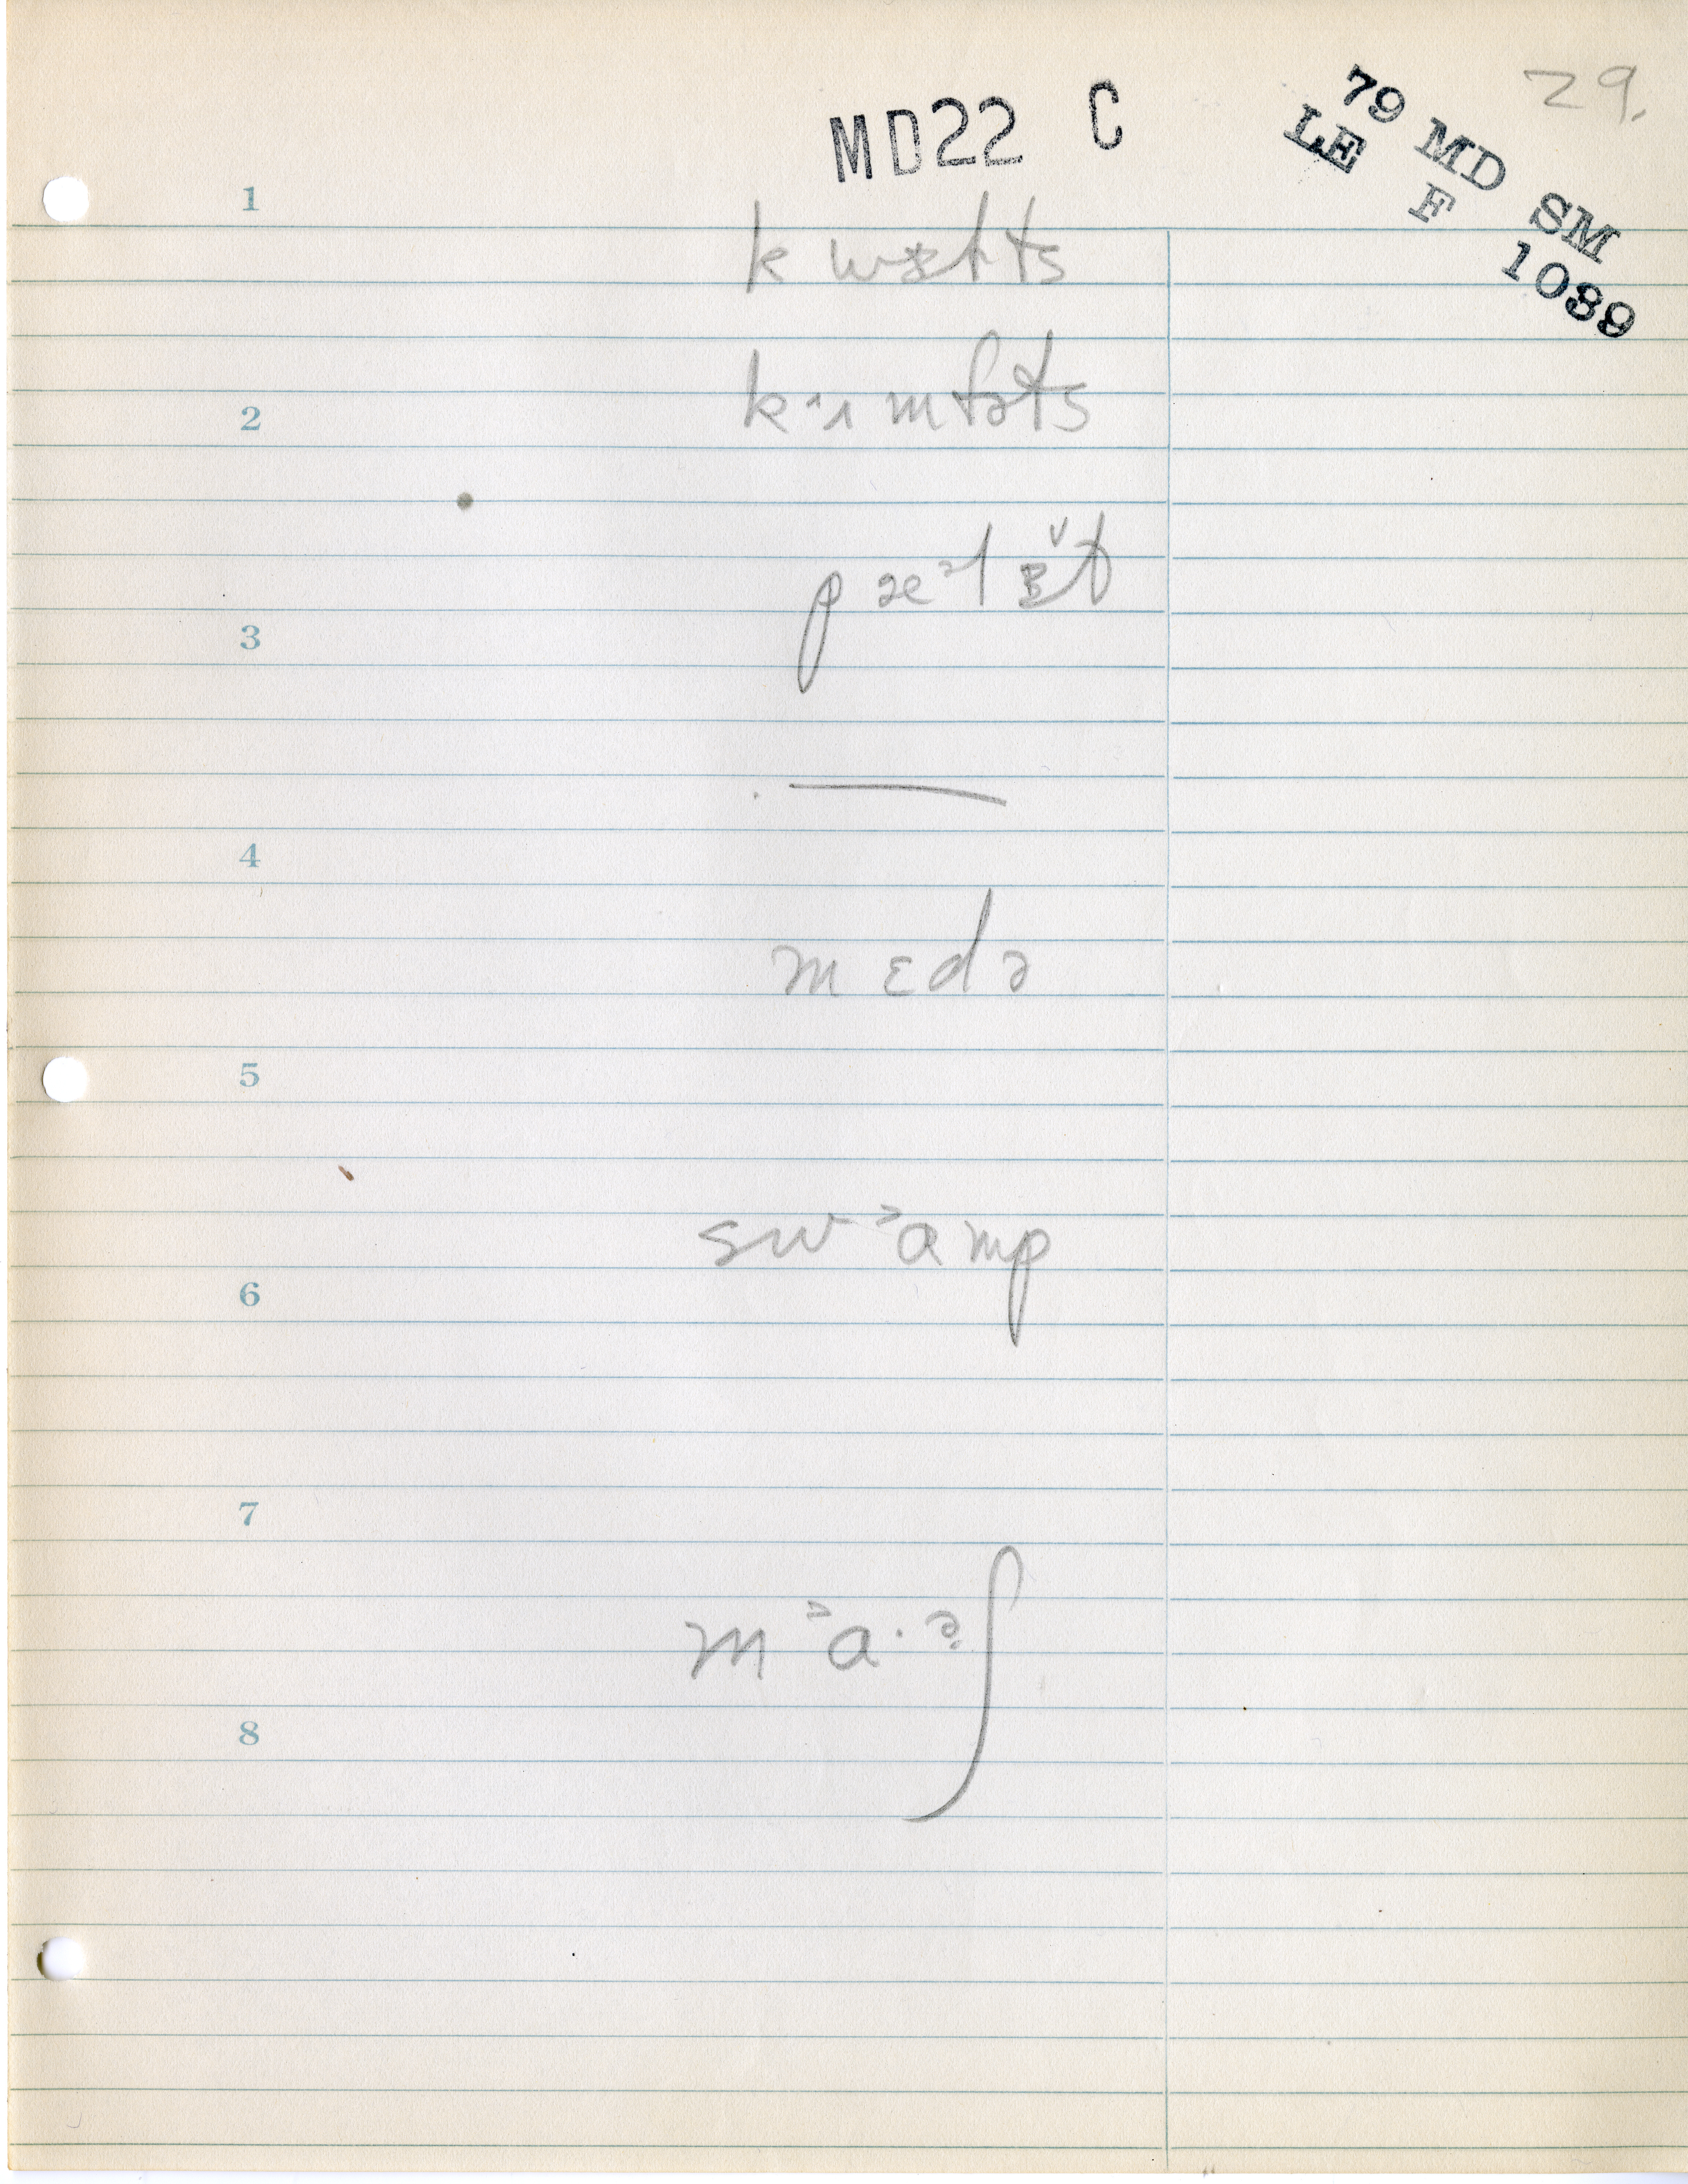 29.
MD22 C
79 MD SM
LE F 1089
1
2
k·ɪmfɚts
3
—
4
mɛdə
5
sw˃ɑmp
6
7
m˃ɑ·ə̣ʃ
8